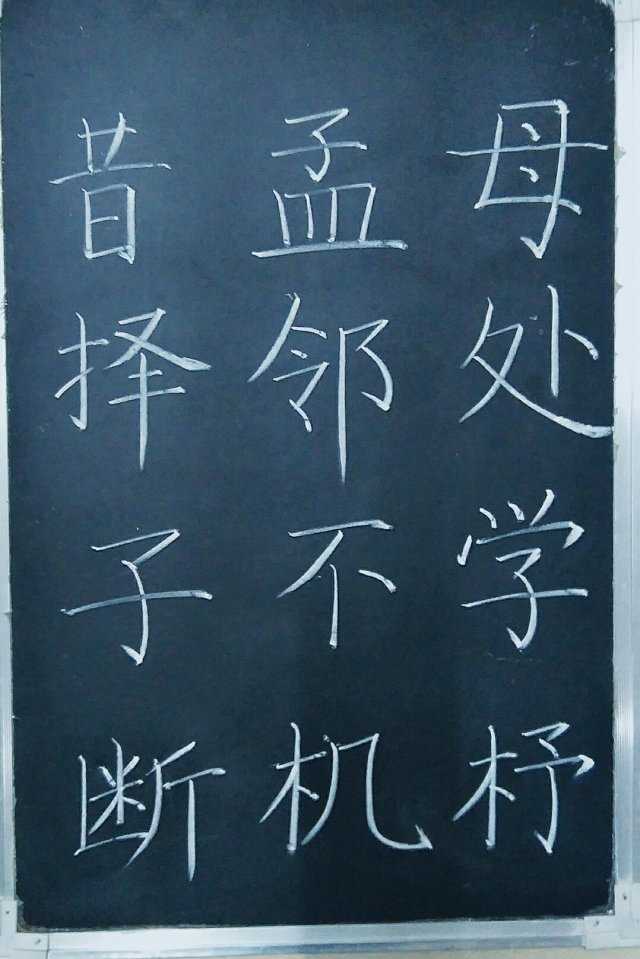 昔孟母
择邻处
子不学
断机杼